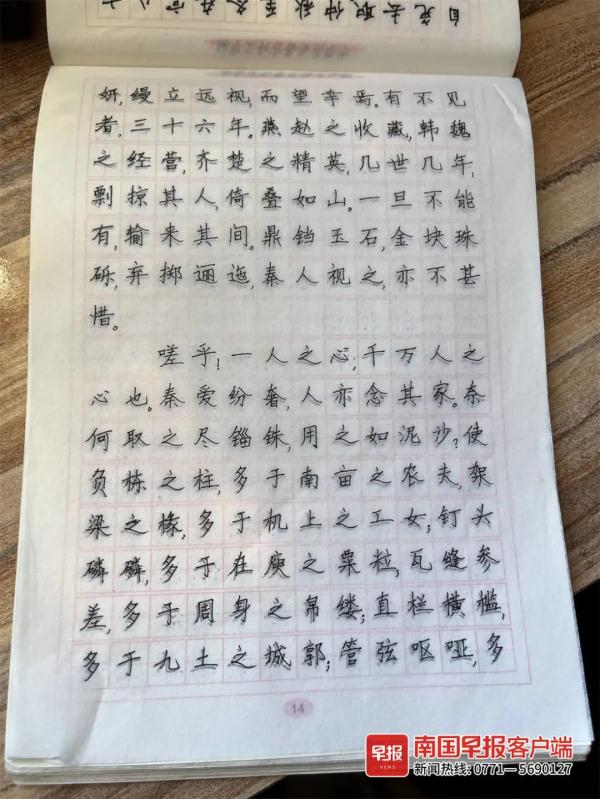 妍，缦立远视，而望幸焉。有不见
者，三十六年。燕赵之收藏，韩魏
之经营，齐楚之精英，几世几年，
剽掠其人，倚叠如山。一旦不能
有，输来其间。鼎铛玉石，金块珠
砾，弃掷逦迤，秦人视之，亦不甚
惜。
嗟乎！一人之心，千万人之
心也。秦爱纷奢，人亦念其家。奈
何取之尽锱铢，用之如泥沙？使
负栋之柱，多于南亩之农夫，架
梁之椽，多于机上之工女；钉头
磷磷，多于在庾之粟粒，瓦缝参
差，多于周身之帛缕；直栏横槛，
多于九土之城郭；管弦呕哑，多
14
早报 NEWS 南国早报客户端
新闻热线: 0771—5690127